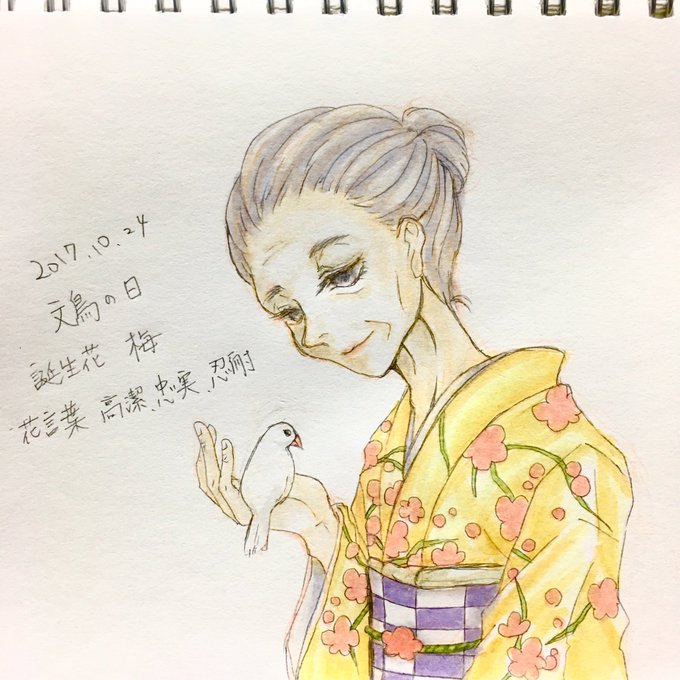 2017.10.24
文鳥の日
誕生花 梅
花言葉 高潔、忠実、忍耐